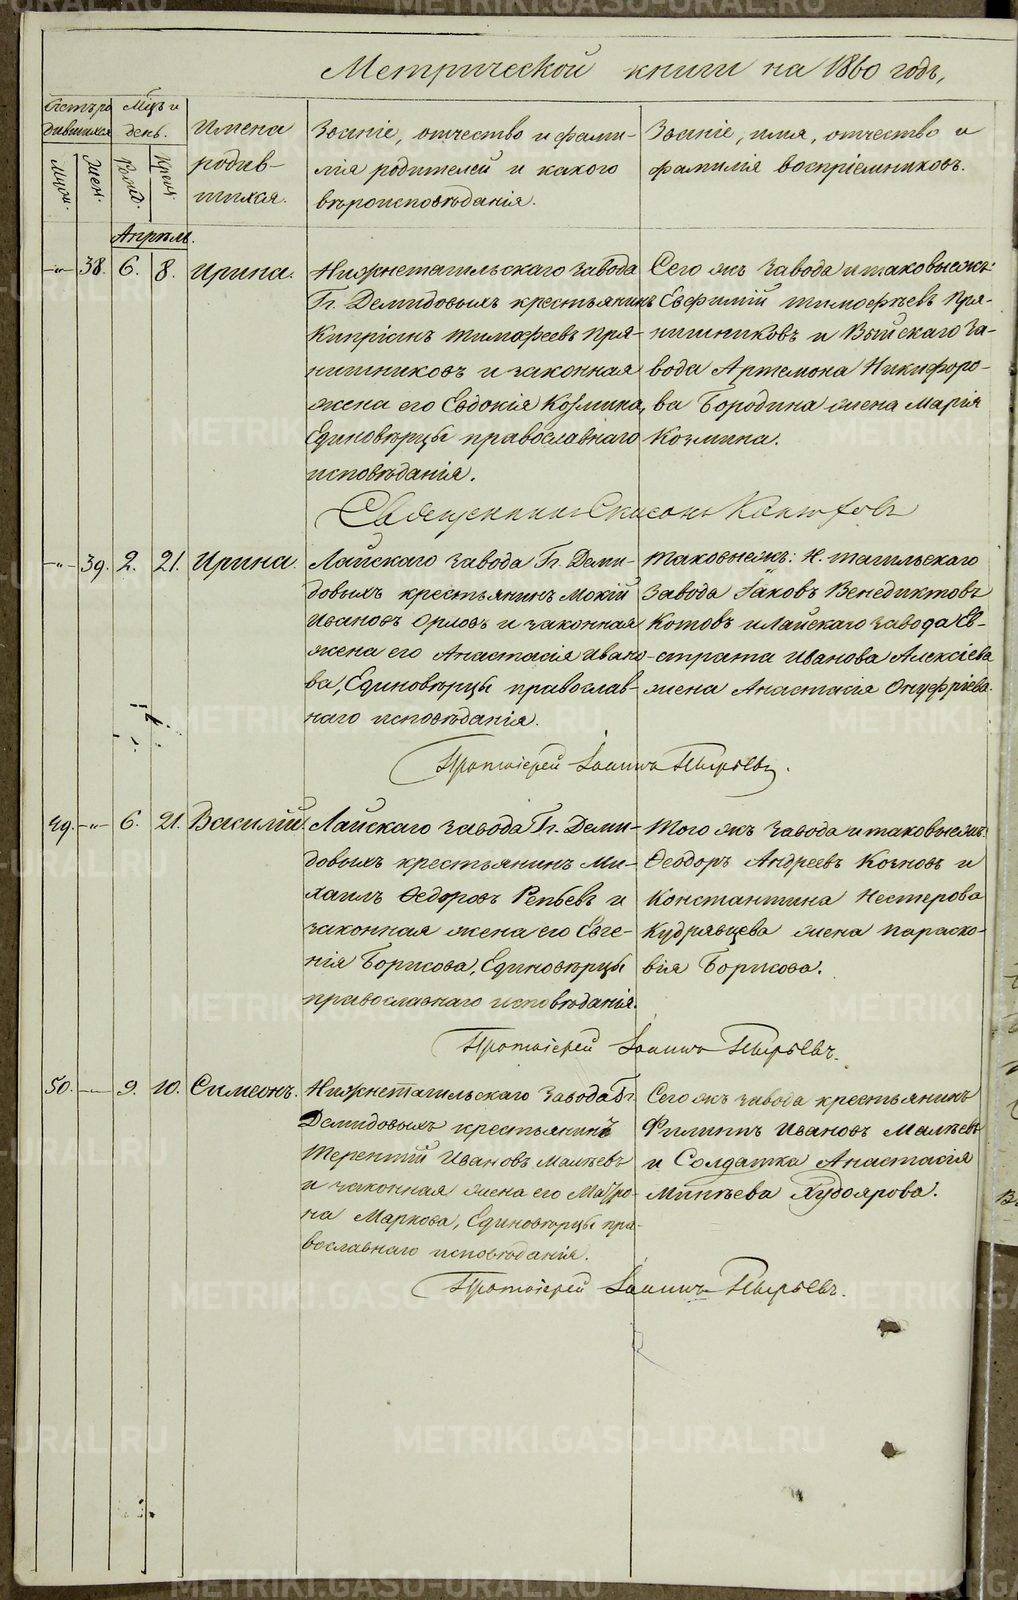 Метрической книги на 1860 годъ,
Счетъ ро-
дившихся
Мцъ и
день.
Имена
родив-
шихся.
Званіе, отчество и фами-
лія родителей и какого
вѣроисповѣданія.
Званіе, имя, отчество и
фамилія воспріемниковъ.
Муж.
Жен.
Рожд.
Крещ.
Апрѣль.
-"- 38. 6. 8. Ирина.
Нижнетагильскаго завода
Гг. Демидовыхъ крестьянинъ
Кипріанъ Тимофеевъ Пря-
нишниковъ и законная
жена его Евдокія Козмина,
Единовѣрцы православнаго
исповѣданія.
Сего жъ завода и таковыежъ:
Евфимій Тимофѣевъ Пря-
нишниковъ и Выйскаго за-
вода Артемона Никифоро-
ва Бородина жена Марія
Козмина.
Священникъ
-"- 39. 2. 21. Ирина.
Лайскаго завода Гг. Деми-
довыхъ крестьянинъ Мокій
Ивановъ Орловъ и законная
жена его Анастасія Ивано-
ва, Единовѣрцы православ-
наго исповѣданія.
Таковыежъ: Н. Тагильскаго
завода Іаковъ Венедиктовъ
Котовъ и Лайскаго завода Ев-
страта Иванова Алексіева
жена Анастасія Онуфріева.
Протоіерей Іоаннъ Пырьевъ.
49. -"- 6. 21. Василій.
Лайскаго завода Гг. Деми-
довыхъ крестьянинъ Ми-
хаилъ Ѳедоровъ Репьевъ и
законная жена его Евге-
нія Борисова, Единовѣрцы
православнаго исповѣданія.
Того жъ завода и таковыежъ:
Ѳеодоръ Андреевъ Козновъ и
Константина Нестерова
Кудрявцева жена Параско-
вія Борисова.
Протоіерей Іоаннъ Пырьевъ.
50. — 9. 10. Симеонъ.
Нижнетагильскаго завода Гг.
Демидовыхъ крестьянинъ
Терентій Ивановъ Малѣевъ
и законная жена его Матро-
на Маркова, Единовѣрцы пра-
вославнаго исповѣданія.
Сего жъ завода крестьянинъ
Филиппъ Ивановъ Малѣевъ
и Солдатка Анастасія
Минѣева Худоярова.
Протоіерей Іоаннъ Пырьевъ.
METRIKI.GASO-URAL.RU